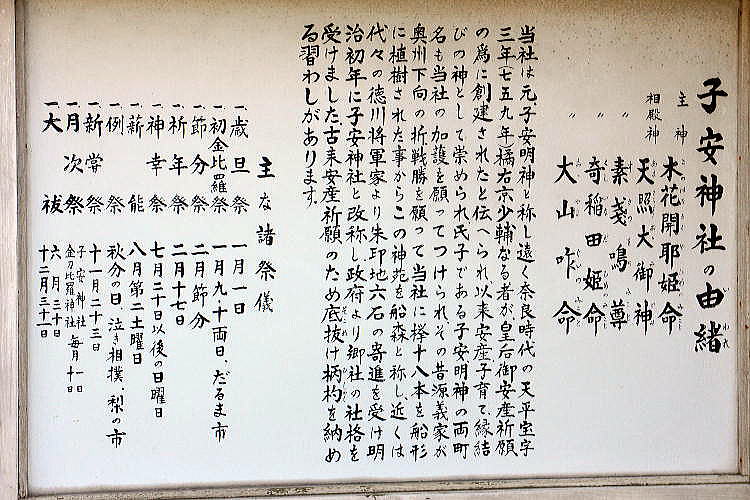 子安神社の由緒
主神 木花開耶姫命
相殿神 天照大御神
〃 素戔嗚尊
〃 奇稲田姫命
大山咋命
当社は元、子安明神と称し遠く奈良時代の天平宝字
三年(七五九年)橘右京少輔なる者が、皇后御安産祈願
の為に創建されたと伝へられ以来安産、子育て、縁結
びの神として崇められ氏子である子安明神の両町
名も当社の加護を願ってつけられその昔源義家が
奥州下向の折戦勝を願って当社に欅十八本を船形
に植樹された事からこの神苑を船森と称し、近くは
代々の徳川将軍家より朱印地六石の寄進を受け明
治初年に子安神社と改称し政府より郷社の社格を
受けました古来安産祈願のため底抜け柄杓を納め
る習わしがあります。
主な諸祭儀
一、歳旦祭 一月一日
一、初金比羅祭 一月九・十両日、だるま市
一、節分祭 二月節分
一、祈年祭 二月十七日
一、神幸祭 七月二十日以後の日曜日
一、薪能 八月第二土曜日
一、例祭 秋分の日、泣き相撲、梨の市
一、新嘗祭 十一月二十三日
一、月次祭 子安神社 毎月一日
金刀比羅神社 毎月十日
一、大祓 六月三十日
十二月三十一日